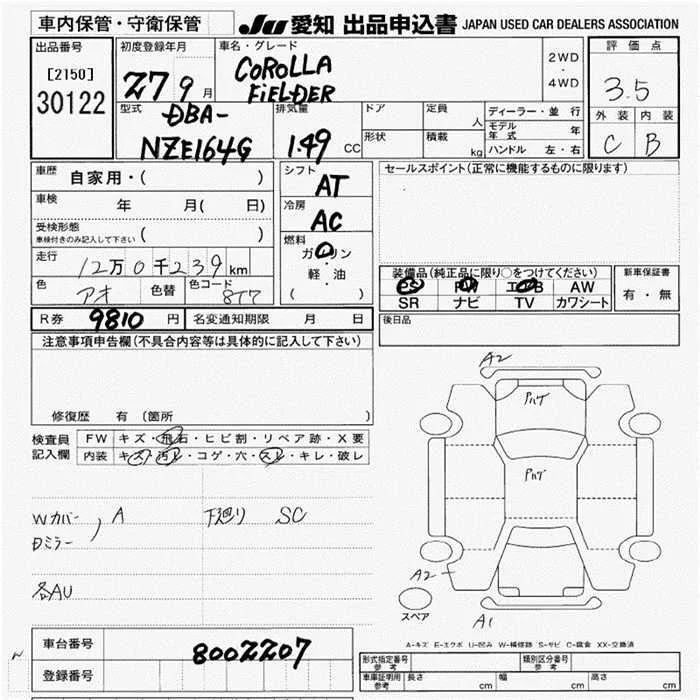 車内保管・守衛保管
JU 愛知 出品申込書 JAPAN USED CAR DEALERS ASSOCIATION
出品番号
[2150]
30122
初度登録年月
27 9 月
車名・グレード
COROLLA
FiELDER
2WD
・
4WD
評価点
3.5
外装 内装
C B
型式
DBA-
NZE164G
排気量
1.49 CC
ドア
形状
定員 人
積載 kg
ディーラー・並 行
モデル年式 年
ハンドル 左・右
車歴 自家用・( )
車検 年 月( 日)
受検形態
車検付きのみ記入して下さい ( )
走行 12万0千239 km
色 アオ 色替 色コード 8T7
シフト
AT
冷房
AC
燃料
ガソリン
・
軽・油
( )
セールスポイント(正常に機能するものに限ります)
装備品(純正品に限り○をつけてください)
PS PW エアB AW
SR ナビ TV カワシート
新車保証書
有・無
R券 9810 円 名変通知期限 月 日
後日品
注意事項申告欄(不具合内容等は具体的に記入して下さい)
修復歴 有 (箇所 )
検査員
記入欄
FW キズ・飛石・ヒビ割・リペア跡・X要
内装 キズ・汚レ・コゲ・穴・スレ・キレ・破レ
Wカバー
Dミラー
, A
下廻り SC
各AU
A2
ハゲ
ハゲ
A2
A1
スペア
A-キズ E-エクボ U-凹み W-補修跡 S-サビ C-腐食 XX-交換済
車台番号 8002207
登録番号
形式指定番号
参考
類別区分番号
参考
車庫証明用
参考
長さ cm 幅 cm 高さ cm